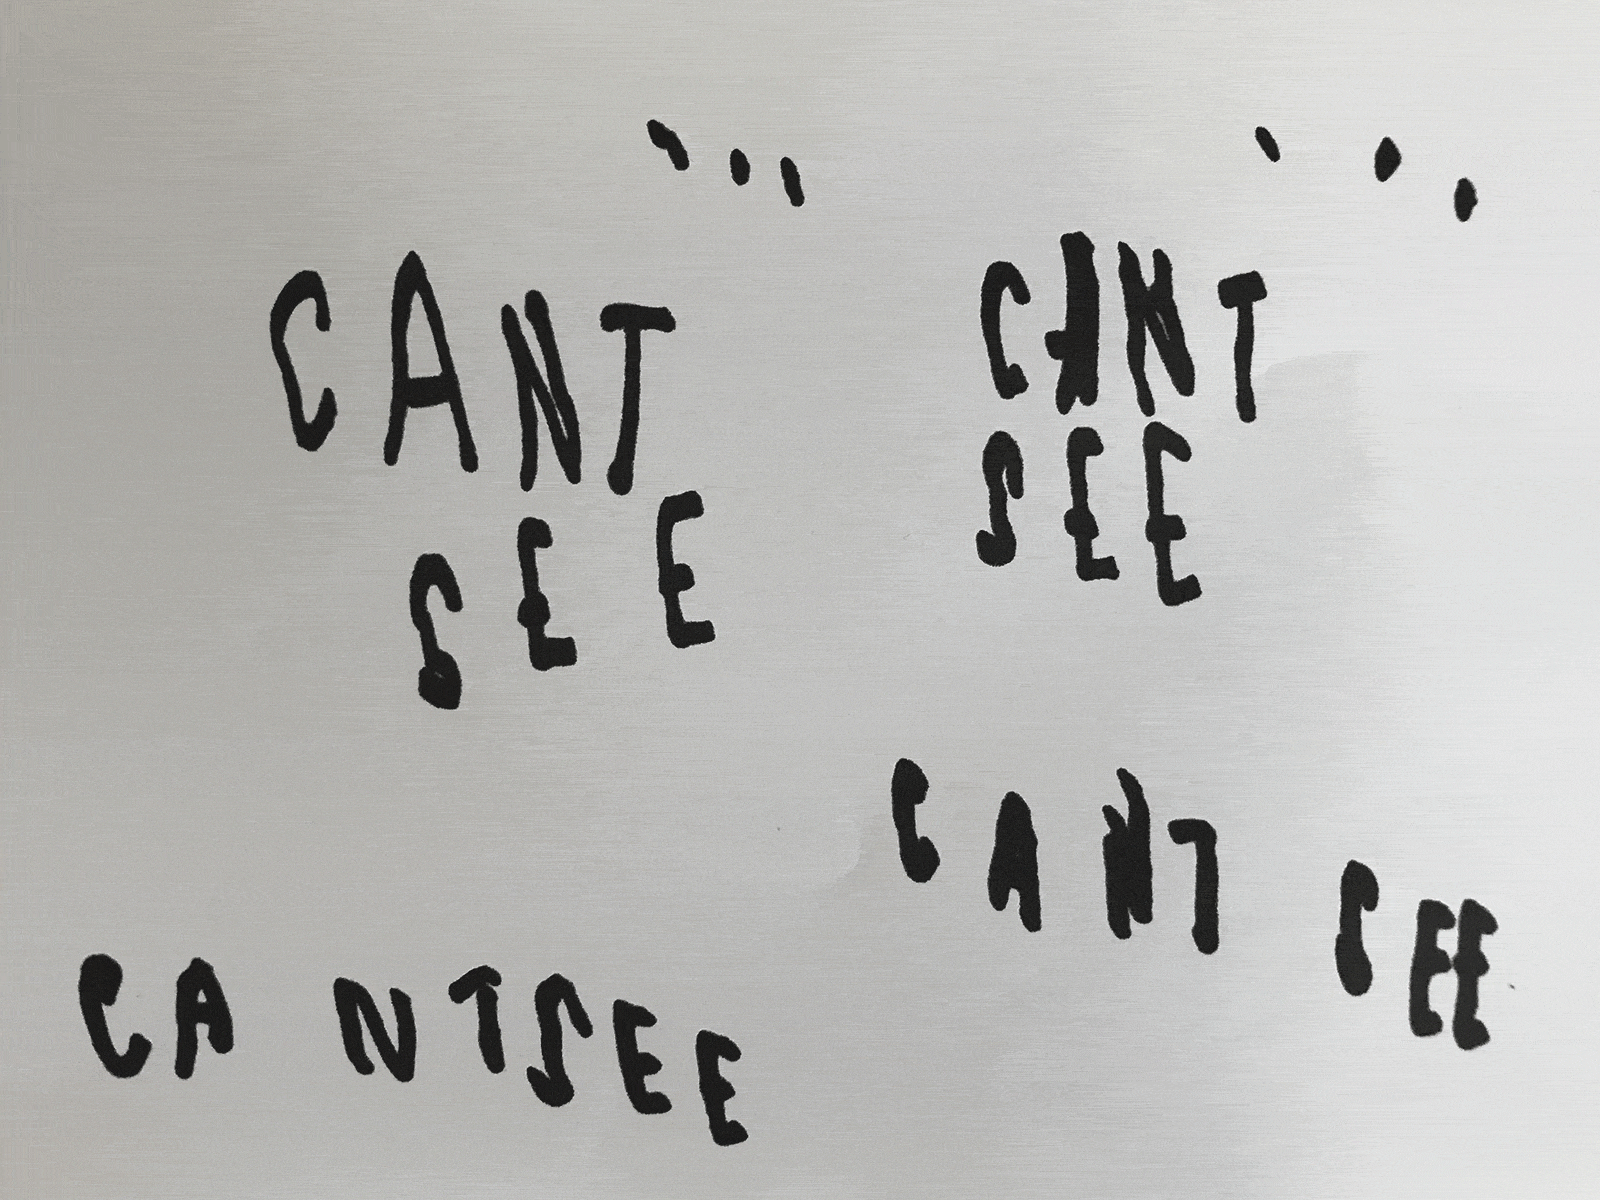 ...
CANT
SEE
...
CANT
SEE
CANT SEE
CANTSEE